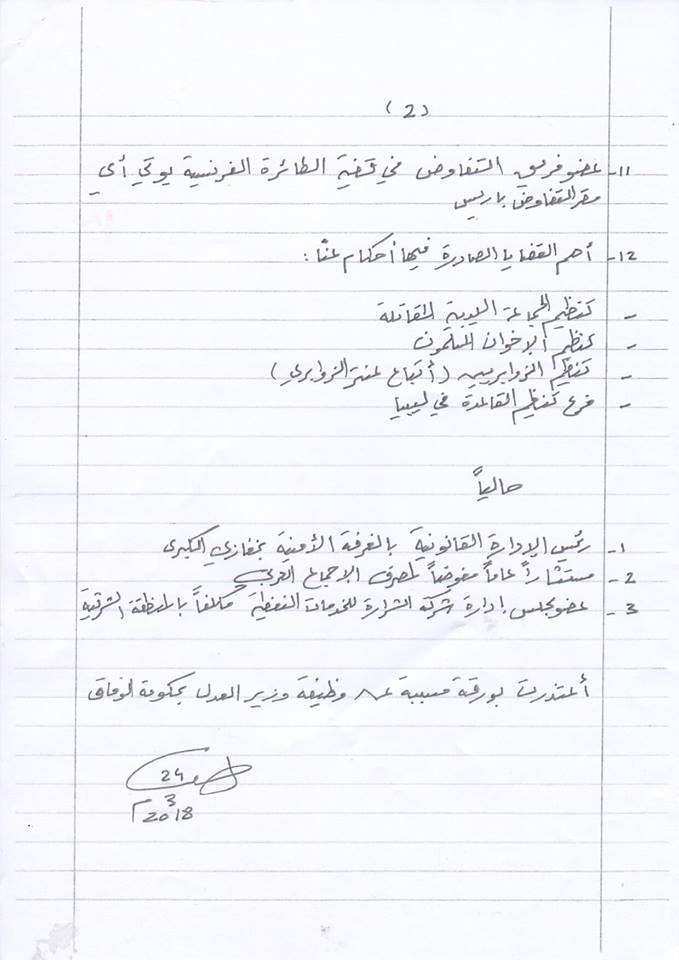 (2)
11- عضو فريق التفاوض في قضية الطائرة الفرنسية يوتي أي
مقر التفاوض باريس
12- أهم القضايا الصادرة فيها أحكام عنّا :
- تنظيم الجماعة الليبية المقاتلة
- تنظيم الإخوان المسلمون
- تنظيم الزوابريين (أتباع عنتر الزوابري)
- فرع تنظيم القاعدة في ليبيا
حالياً
1- رئيس الإدارة القانونية بالغرفة الأمنية بنغازي الكبرى
2- مستشاراً عاماً مفوضاً لمصرف الإجماع العربي
3- عضو مجلس إدارة شركة الشرارة للخدمات النفطية مكلفاً بالمنطقة الشرقية
أعتذرت بورقة مسببة عن وظيفة وزير العدل بحكومة الوفاق
24
3
2018م